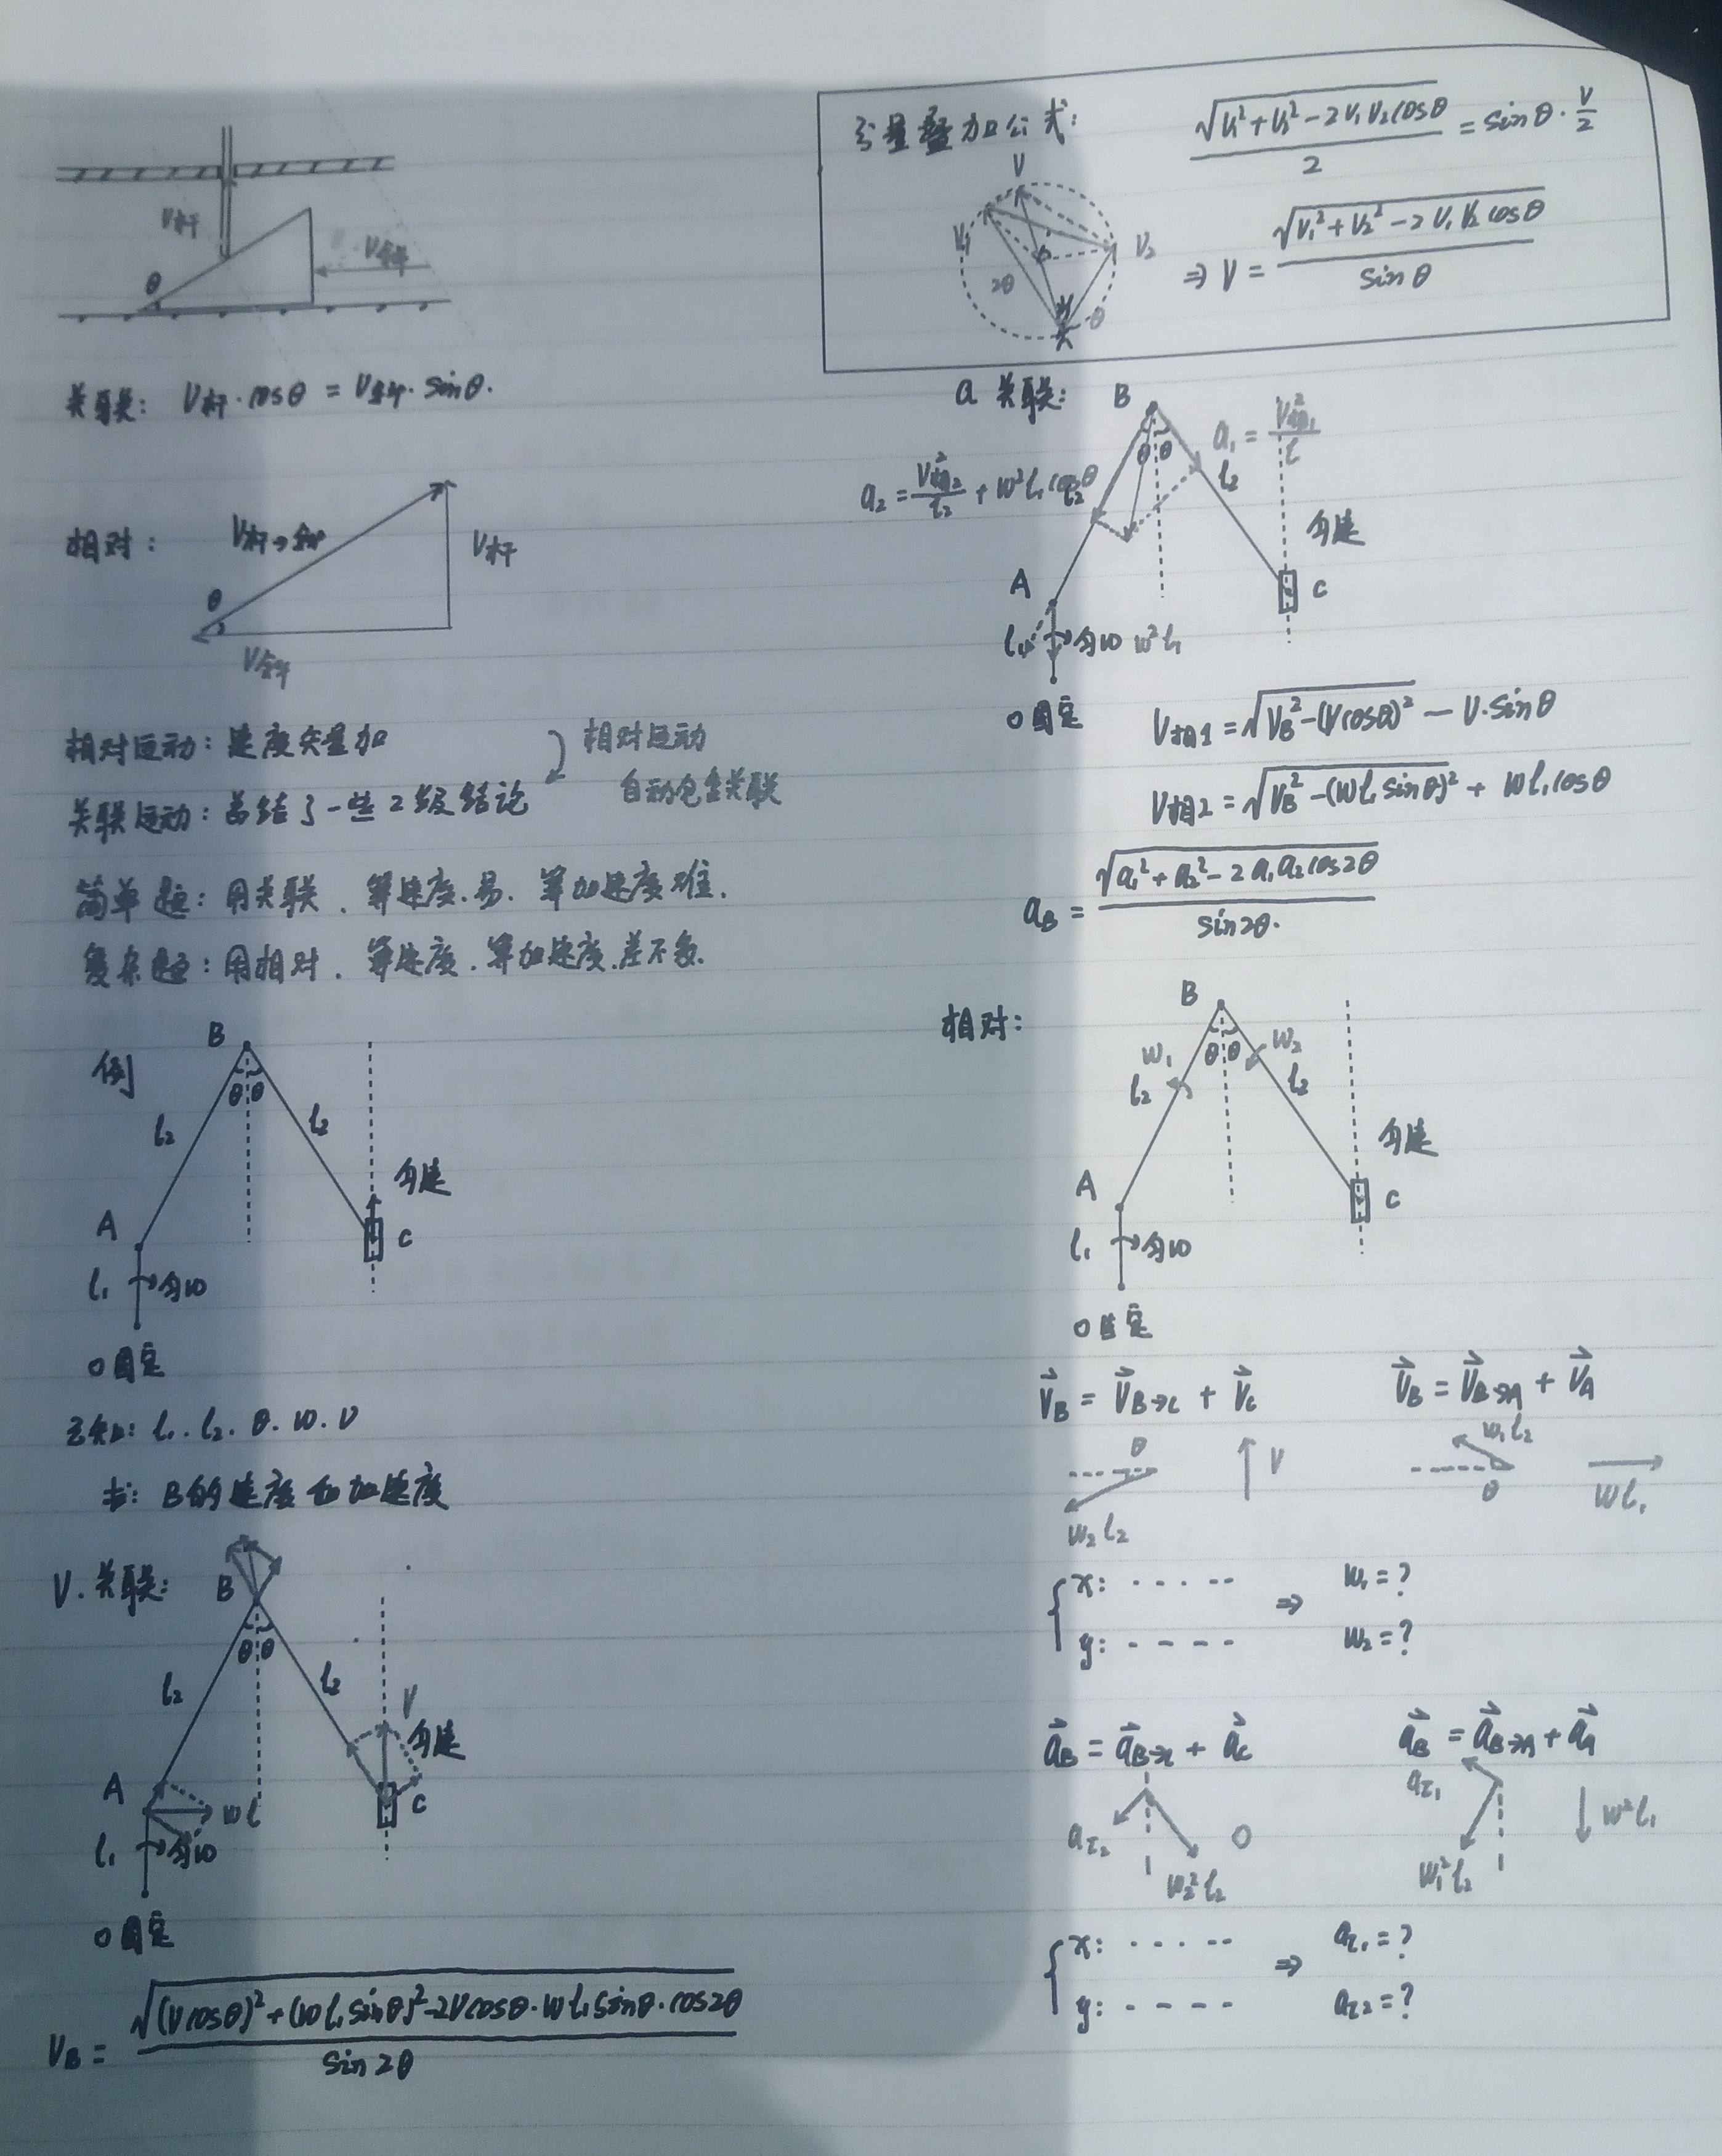 V杆
θ
V斜
关联: V杆·cosθ = V斜·sinθ.
相对:
V杆→斜
V杆
θ
V斜
相对运动: 速度矢量加
关联运动: 总结了一些2级结论
相对运动
自动包含关联
简单题: 用关联、算速度.易. 算加速度难.
复杂题: 用相对、算速度.算加速度.差不多.
例
B
θ θ
l₂
l₂
匀速
A
C
l₁
匀ω
O固定
已知: l₁. l₂. θ. ω. v
求: B的速度和加速度
V.关联:
B
θ θ
l₂
l₂
V
匀速
A
ωl
C
l₁
匀ω
O固定
V_B = √((Vcosθ)²+(ωl₁sinθ)²-2Vcosθ·ωl₁sinθ·cos2θ) / sin2θ
分量叠加公式:
√(V₁²+V₂²-2V₁V₂cosθ) / 2 = sinθ·V/2
V
V₁
V₂
2θ
θ
⇒ V = √(V₁²+V₂²-2V₁V₂cosθ) / sinθ
a 关联:
B
θ θ
a₁ = V²相₁ / l
l₂
a₂ = V²相₂ / l₂ + ω²l₁cosθ
l₂
匀速
A
C
l₁
匀ω
ω²l₁
O固定
V相1 = √(V_B²-(Vcosθ)²) - V·sinθ
V相2 = √(V_B²-(ωl₁sinθ)²) + ωl₁cosθ
a_B = √(a₁²+a₂²-2a₁a₂cos2θ) / sin2θ.
相对:
B
θ θ
ω₁
ω₂
l₂
l₂
匀速
A
C
l₁
匀ω
O固定
V⃗_B = V⃗_B→C + V⃗_C
V⃗_B = V⃗_B→A + V⃗_A
θ
ω₂l₂
V
ω₁l₂
θ
ωl₁
x: · · · · --
y: - - - -
⇒
ω₁ = ?
ω₂ = ?
a⃗_B = a⃗_B→C + a⃗_C
a⃗_B = a⃗_B→A + a⃗_A
a_τ₂
ω₂²l₂
0
a_τ₁
ω₁²l₂
ω²l₁
x: · · · · --
y: - - - -
⇒
a_τ₁ = ?
a_τ₂ = ?